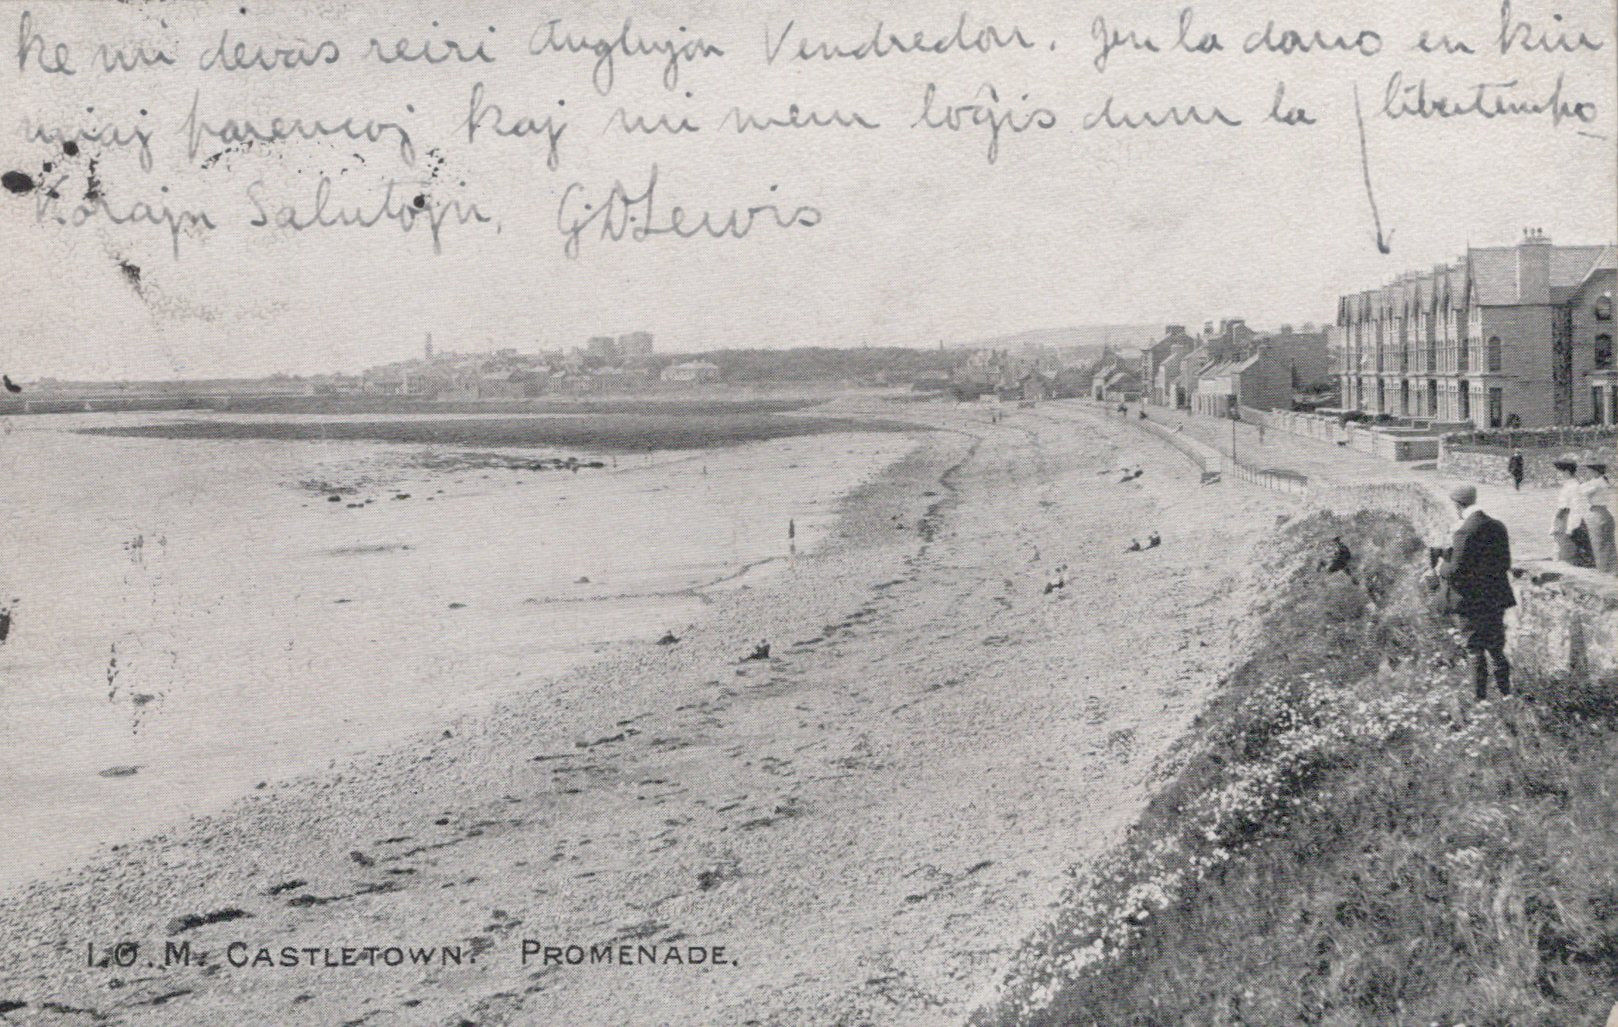 ke mi devas reiri Anglujon Vendredon. Jen la domo en kiu
miaj parencoj kaj mi mem loĝis dum la libertempo
Korajn Salutojn, G.D. Lewis
I.O.M. CASTLETOWN. PROMENADE.